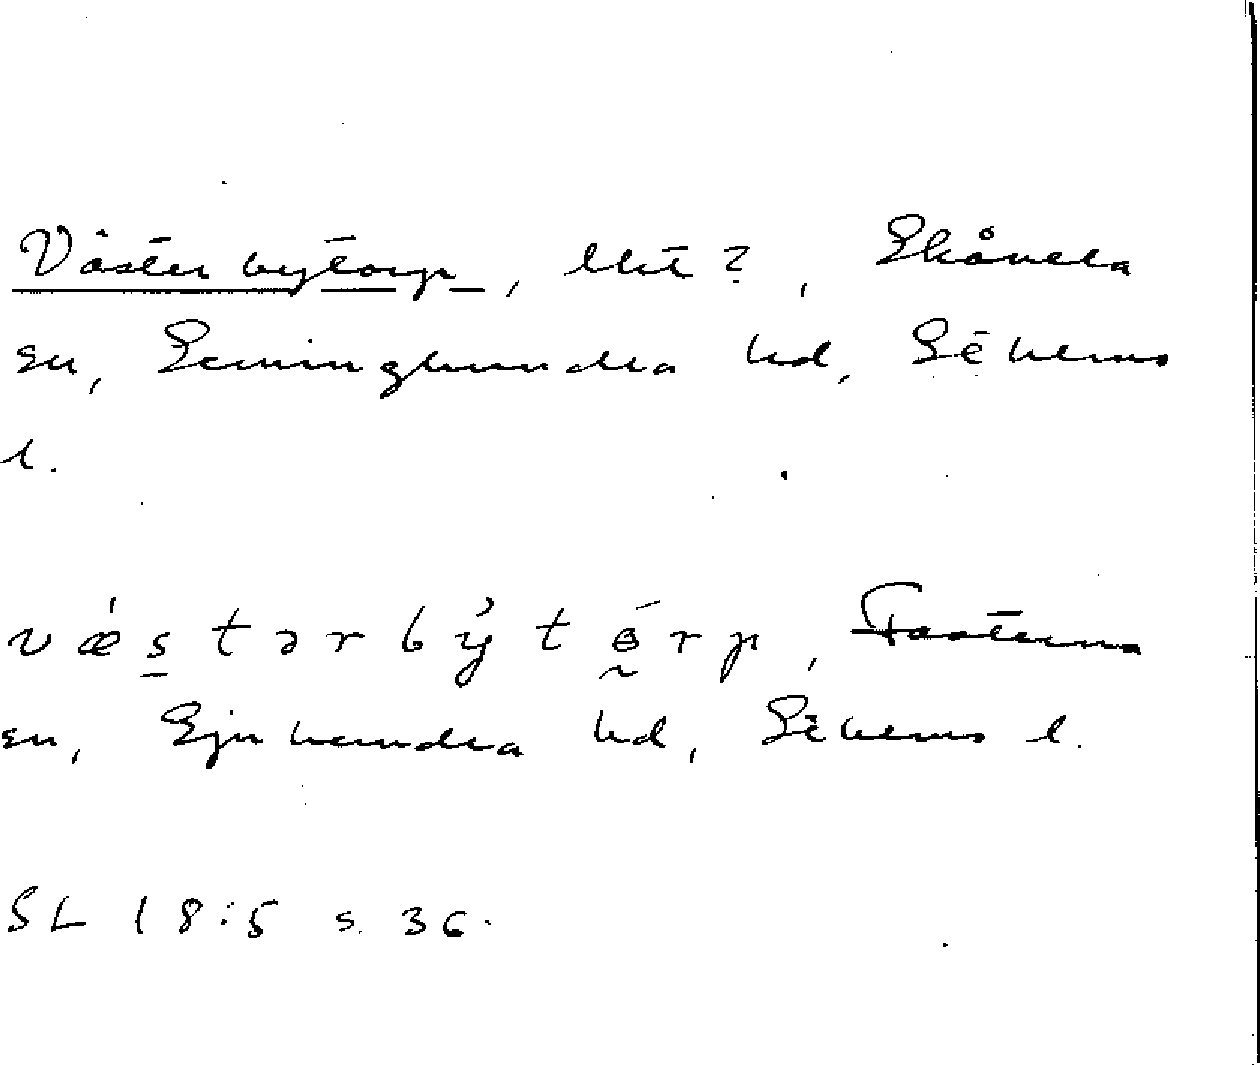 Västerbytorp, lht?, Skånela
sn, Seminghundra hd, Sthlms
l.
vǽstərbýtórp, Fasterna
sn, Sjuhundra hd, Sthlms l.
SL 18:5 s. 36.